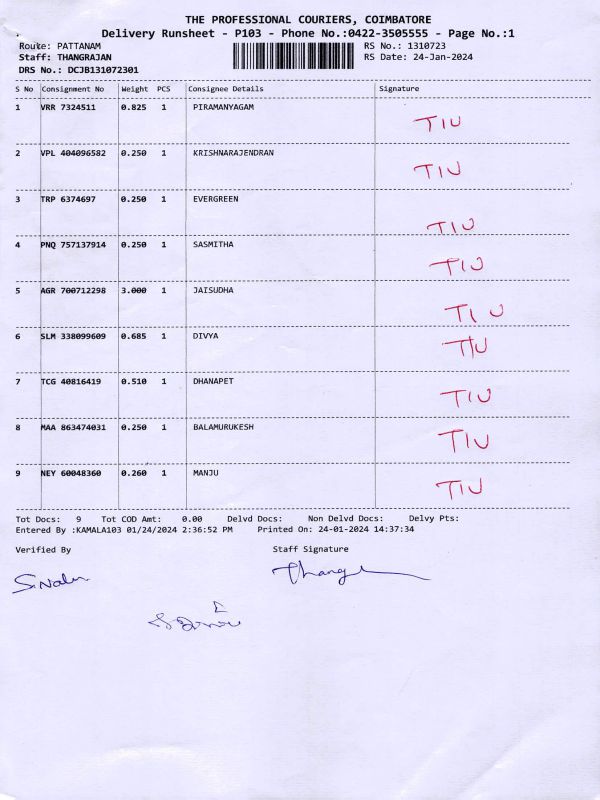 THE PROFESSIONAL COURIERS, COIMBATORE
Delivery Runsheet - P103 - Phone No.:0422-3505555 - Page No.:1
Route: PATTANAM RS No.: 1310723
Staff: THANGRAJAN RS Date: 24-Jan-2024
DRS No.: DCJB131072301
S No Consignment No Weight PCS Consignee Details Signature
1 VRR 7324511 0.825 1 PIRAMANYAGAM TIU
2 VPL 404096582 0.250 1 KRISHNARAJENDRAN TIU
3 TRP 6374697 0.250 1 EVERGREEN TIU
4 PNQ 757137914 0.250 1 SASMITHA TIU
5 AGR 700712298 3.000 1 JAISUDHA TIU
6 SLM 338099609 0.685 1 DIVYA TIU
7 TCG 40816419 0.510 1 DHANAPET TIU
8 MAA 863474031 0.250 1 BALAMURUKESH TIU
9 NEY 60048360 0.260 1 MANJU TIU
Tot Docs: 9 Tot COD Amt: 0.00 Delvd Docs: Non Delvd Docs: Delvy Pts:
Entered By :KAMALA103 01/24/2024 2:36:52 PM Printed On: 24-01-2024 14:37:34
Verified By Staff Signature